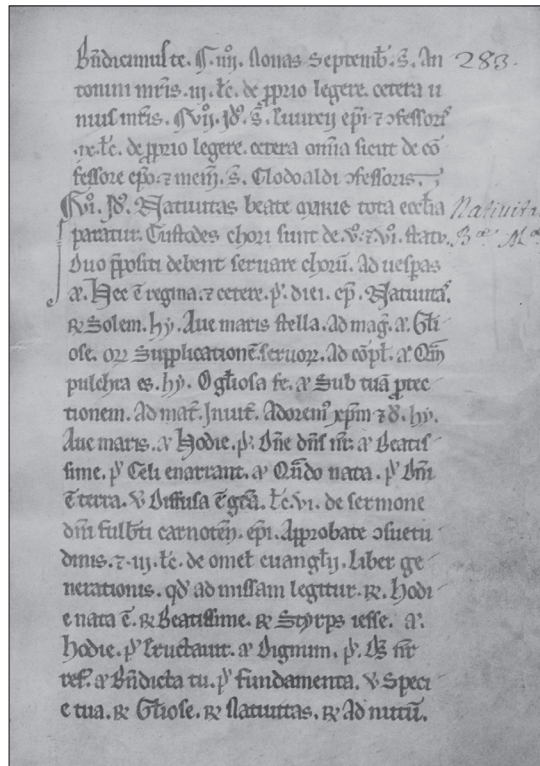 Bn̄dicimus te. ¶. iiij. Nonas Septemb̄. S̄. An 283.
tonini mr̄is. iij. łc̄. de p̱prio legere. cetera u
nius mr̄is. ¶ vij. Jd̄. S̄. Euurcij ep̄i ⁊ ↄfessoris
.ix. łc̄. de p̱prio legere. cetera om̄ia sicut de cō
fessore ep̄o. ⁊ mem̄. S̄. Clodoaldi ↄfessoris.
¶ vi. Jd̄. Natiuitas beate marie tota eccl̄ia Nativita
paratur. Custodes chori sunt de .v. ⁊ .vi. statu. Bæ Mæ
Duo p̄positi debent seruare chorū. Ad uesp̄as
a̅. Hec ē regina. ⁊ cetere. p̄. diei. cp̄. Natiuitas.
℟ Solem. hȳ. Aue maris stella. Ad mag̅. a̅. Gl̄i
ose. or̄ Supplicationē seruoꝝ. Ad cōpł. a̅ Qm̄
pulchra es. hȳ. O gl̄iosa fe. a̅ Sub tuā p̱tec
tionem. Ad mat̄. Jnuit̄. Adorem⁹ xp̄m ⁊ d̄. hȳ.
Aue maris. a̅ Hodie. p̄. Dn̄e dn̄s nr̄. a̅ Beatis
sime. p̄ Celi enarrant. a̅ Qn̄do nata. p̄ Dn̄i
ē terra. ℣ Diffusa ē gr̄a. łc̄. vi. de sermone
dn̄i fulb̄ti carnoten̄. ep̄i. Approbate ↄsuetu
dinis. ⁊ .iij. łc̄. de omeł euangl̄ij. Liber ge
nerationis. qd̄ ad missam legitur. ℟. Hodi
e nata ē. ℟ Beatissime. ℟ Styrps iesse. a̅.
Hodie. p̄ Eructauit. a̅ Dignum. p̄. Ds̄ nr̄
ref. a̅ Bn̄dicta tu. p̄ fundamenta. ℣ Speci
e tua. ℟ Gl̄iose. ℟ Natiuitas. ℟ Ad nutū.